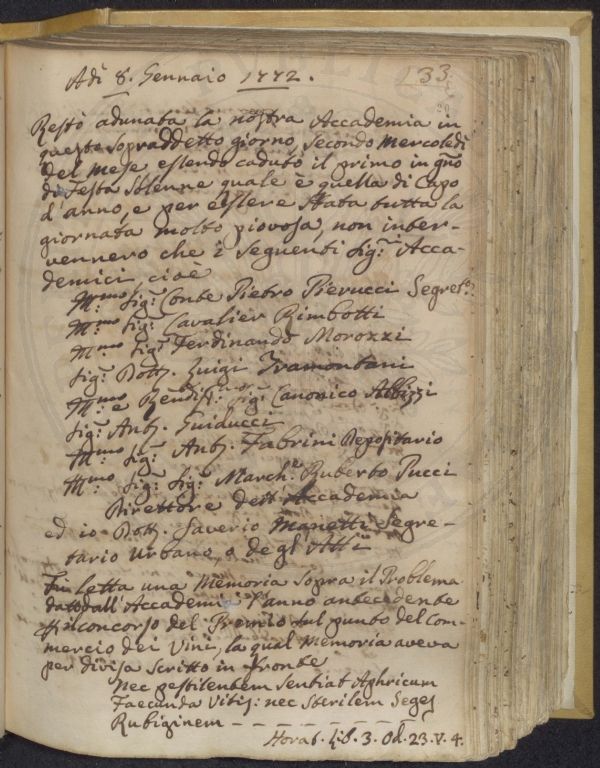 Adì 8. Gennaio 1772.
133
Restò adunata la nostra Accademia in
questo sopraddetto giorno, secondo Mercoledì
del mese essendo caduto il primo in gno
di Festa solenne quale è quella di Capo
d'anno, e per essere stata tutta la
giornata molto piovosa, non inter-
vennero che i seguenti Sigri. Acca-
demici cioe
Illmo. Sigr. Conte Pietro Pierucci Segreto.
Illmo. Sigr. Cavalier Rimbotti
Illmo. Sigr. Ferdinando Morozzi
Sigr. Dott. Luigi Tramontani
Illmo. e Rendis. Sigr. Canonico Albizzi
Sigr. Ant. Guiducci
Illmo. Sigr. Ant. Fabrini Depositario
Illmo. Sigr. Sigr. March.e Ruberto Pucci
Direttore dell'Accademia
ed io Dott. Saverio Manetti Segre-
tario Urbano, o degl'Atti
Fu letta una Memoria sopra il Problema
dato dall'Accademia l'anno antecedente
il concorso del Premio sul punto del Com-
mercio dei Vini, la qual Memoria aveva
per divisa scritto in fronte
Nec pestilentem sentiat Aphricum
Faecunda Vitis: nec sterilem Seges
Rubiginem
Horat. Lib. 3. Od. 23. V. 4.